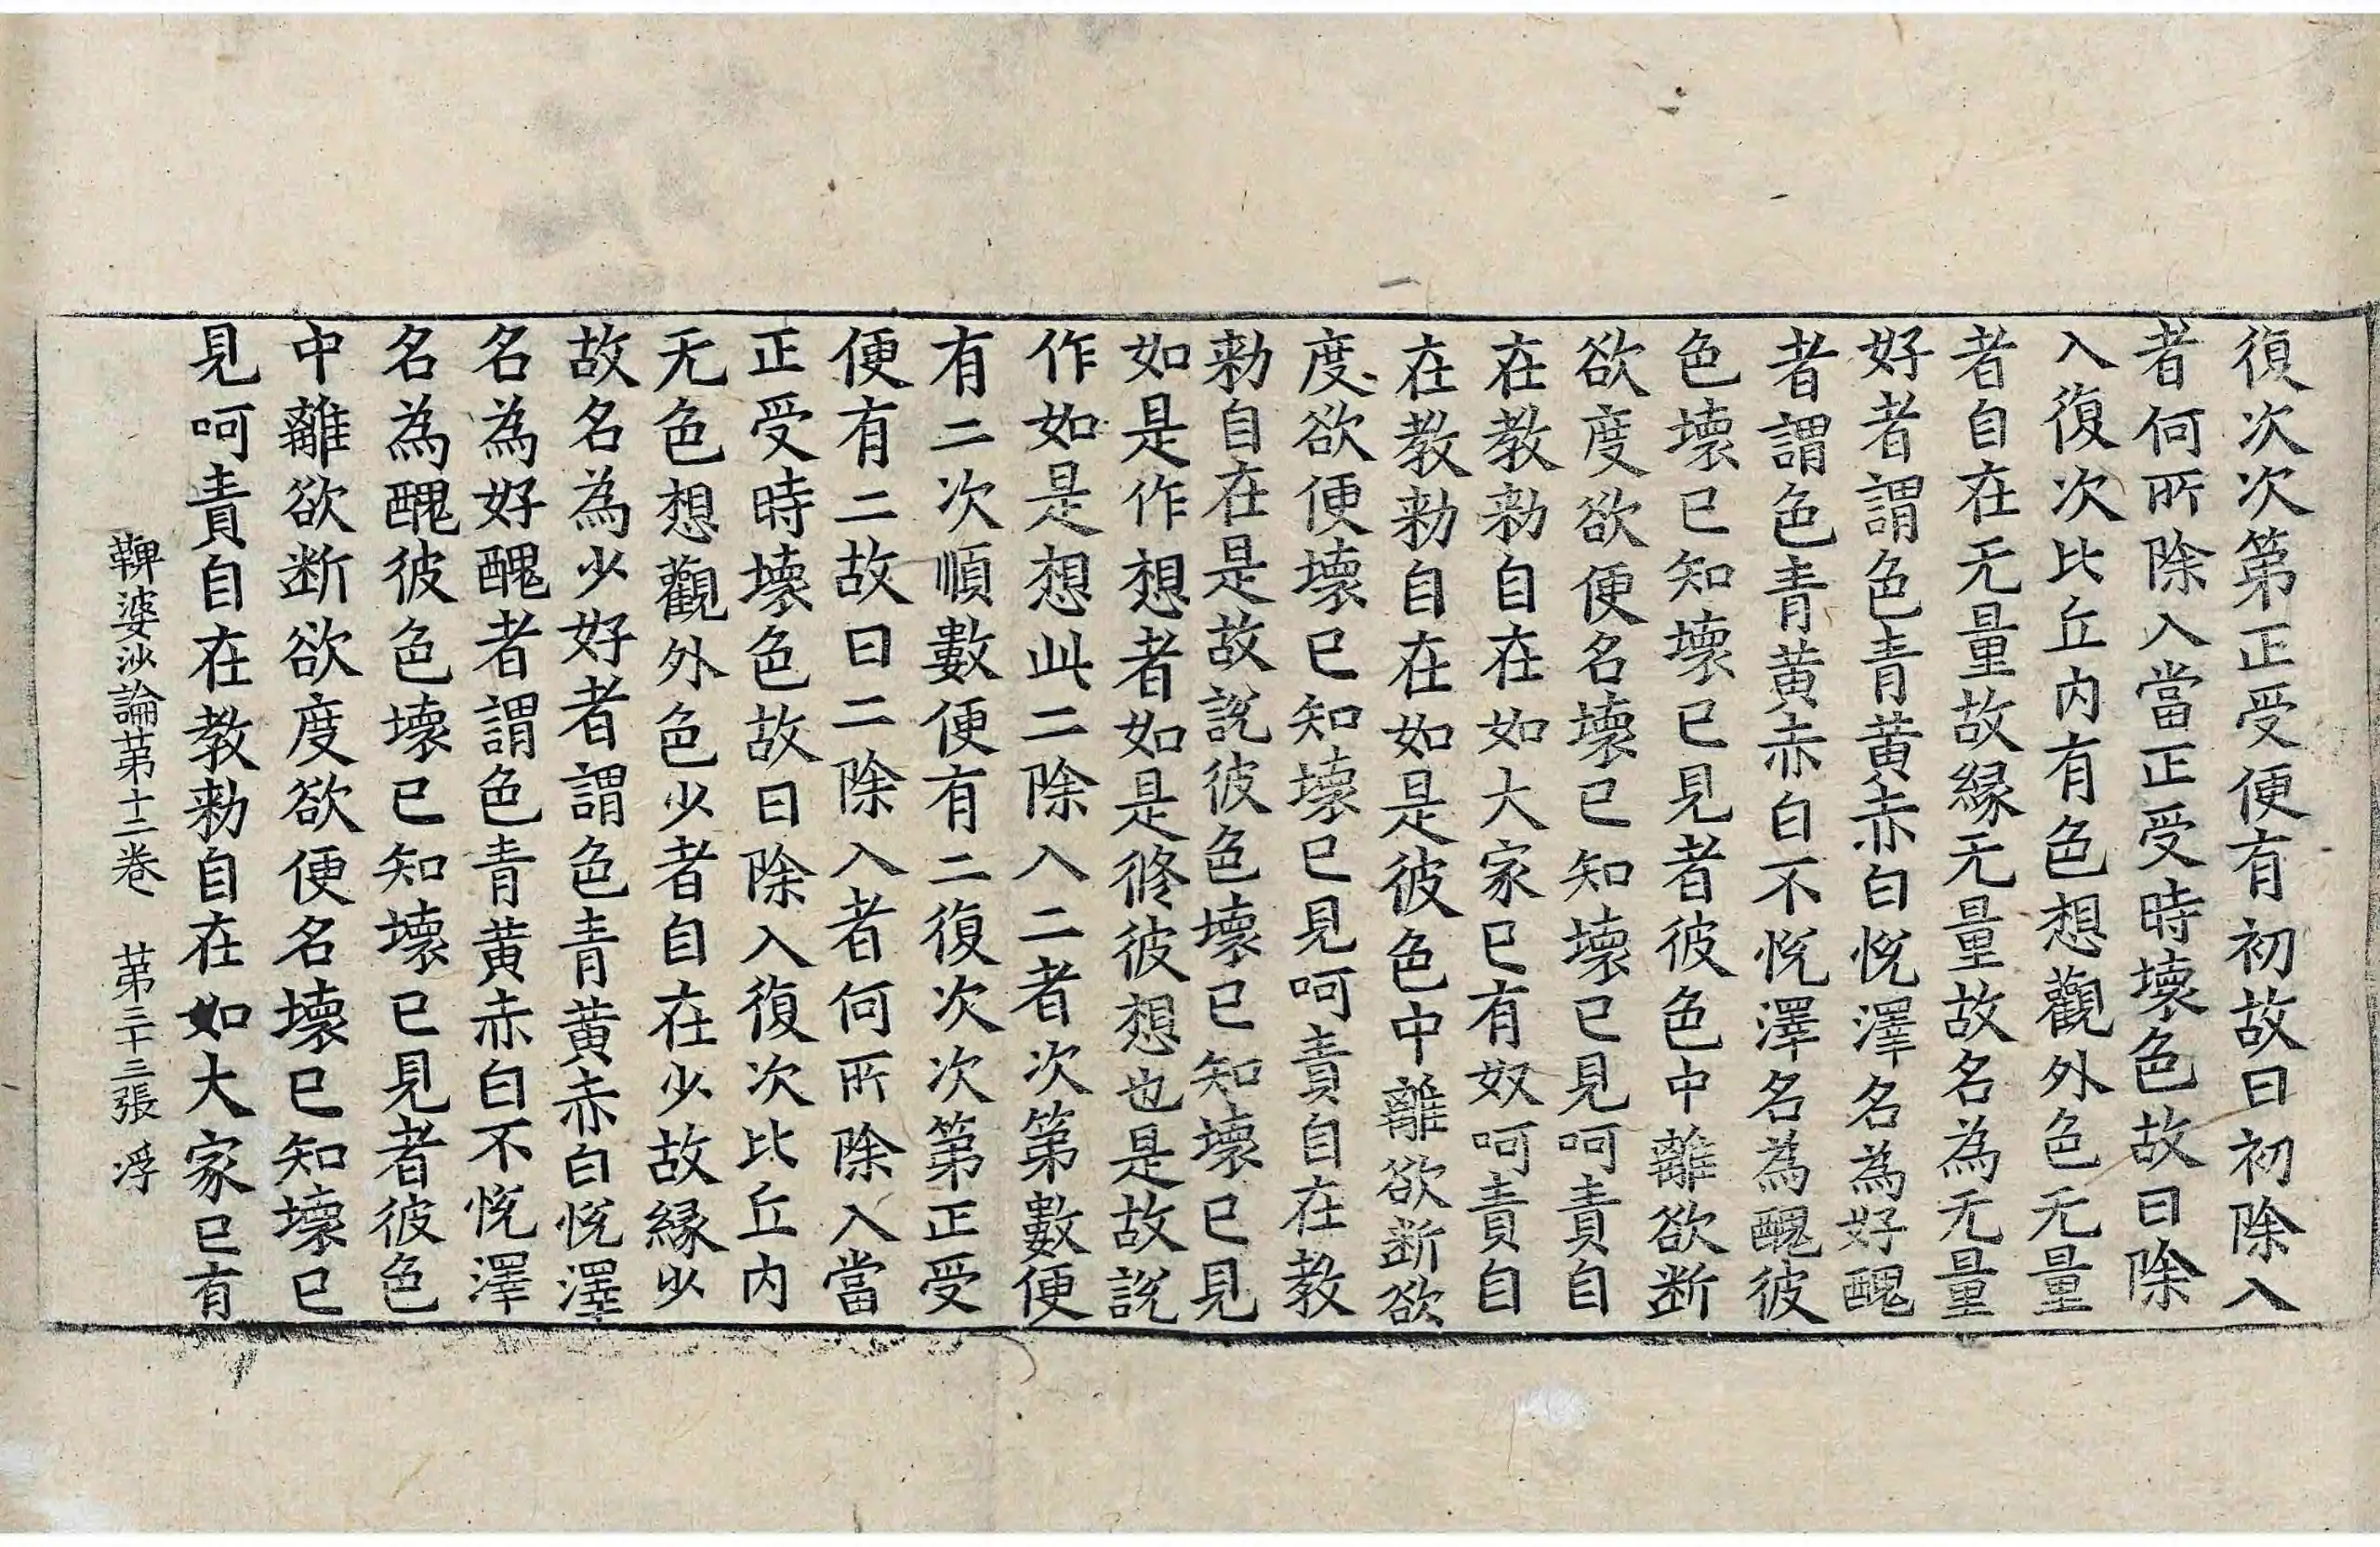 復次次第正受便有初故曰初除入
者何所除入當正受時壞色故曰除
入復次比丘内有色想觀外色无量
者自在无量故縁无量故名為无量
好者謂色青黄赤白悦澤名為好醜
者謂色青黄赤白不悦澤名為醜彼
色壞已知壞已見者彼色中離欲断
欲度欲便名壞已知壞已見呵責自
在教勑自在如大家已有奴呵責自
在教勑自在如是彼色中離欲断欲
度欲便壞已知壞已見呵責自在教
勑自在是故説彼色壞已知壞已見
如是作想者如是修彼想也是故説
作如是想此二除入二者次第數便
有二次順數便有二復次次第正受
便有二故曰二除入者何所除入當
正受時壞色故曰除入復次比丘内
无色想觀外色少者自在少故縁少
故名為少好者謂色青黄赤白悦澤
名為好醜者謂色青黄赤白不悦澤
名為醜彼色壞已知壞已見者彼色
中離欲断欲度欲便名壞已知壞已
見呵責自在教勑自在如大家已有
鞞婆沙論第十二卷　第三十三張　浮